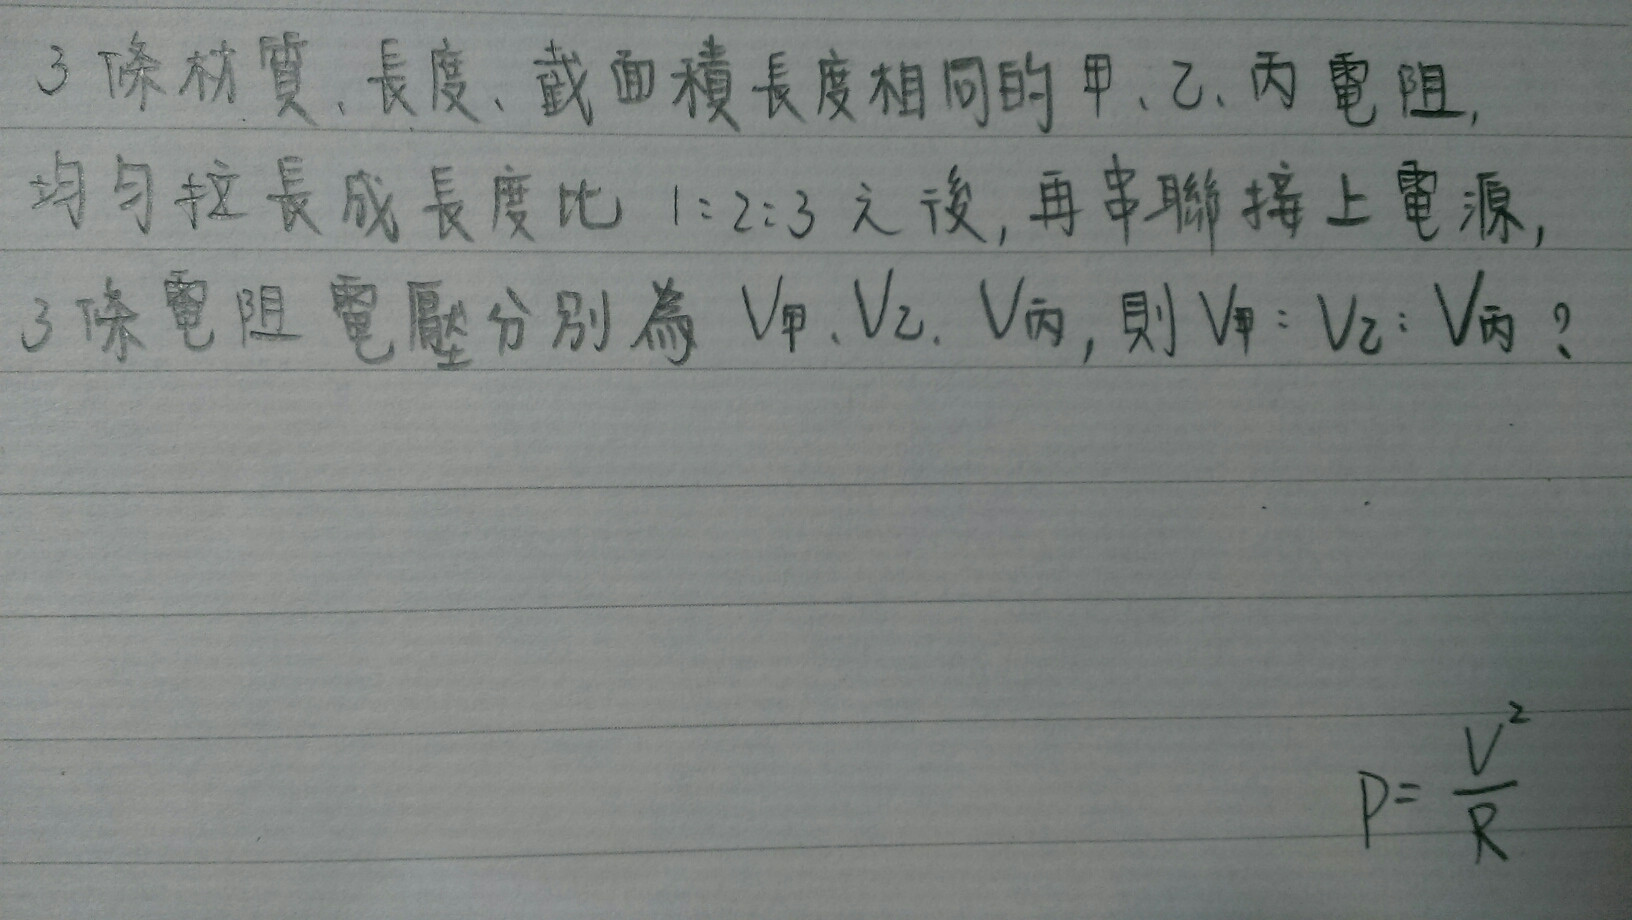 3條材質、長度、截面積長度相同的甲、乙、丙電阻,
均勻拉長成長度比 1:2:3之後,再串聯接上電源,
3條電阻電壓分別為 V甲、V乙、V丙,則V甲:V乙:V丙?
P= V²/R